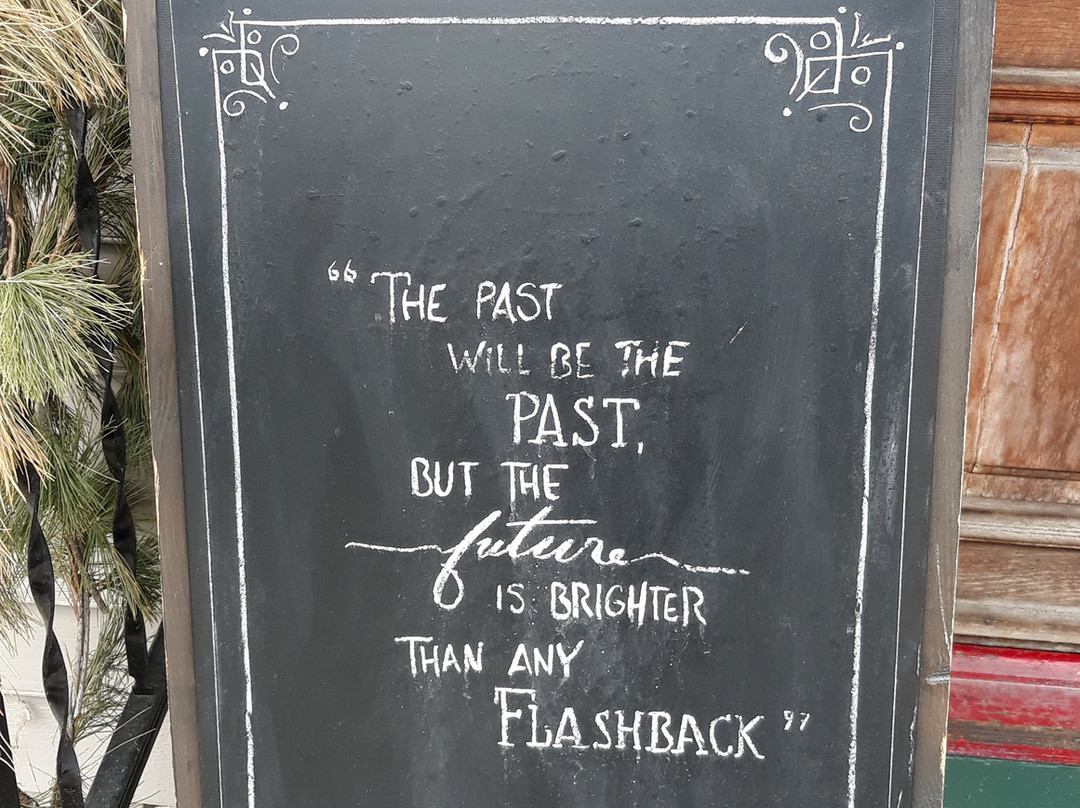 “ THE PAST
WILL BE THE
PAST,
BUT THE
future
IS BRIGHTER
THAN ANY
FLASHBACK ”